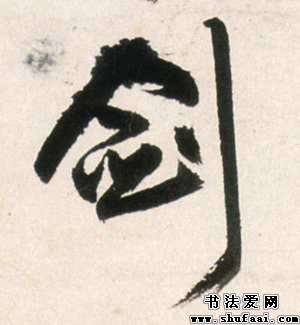 剑
书法爱网
www.shufaai.com